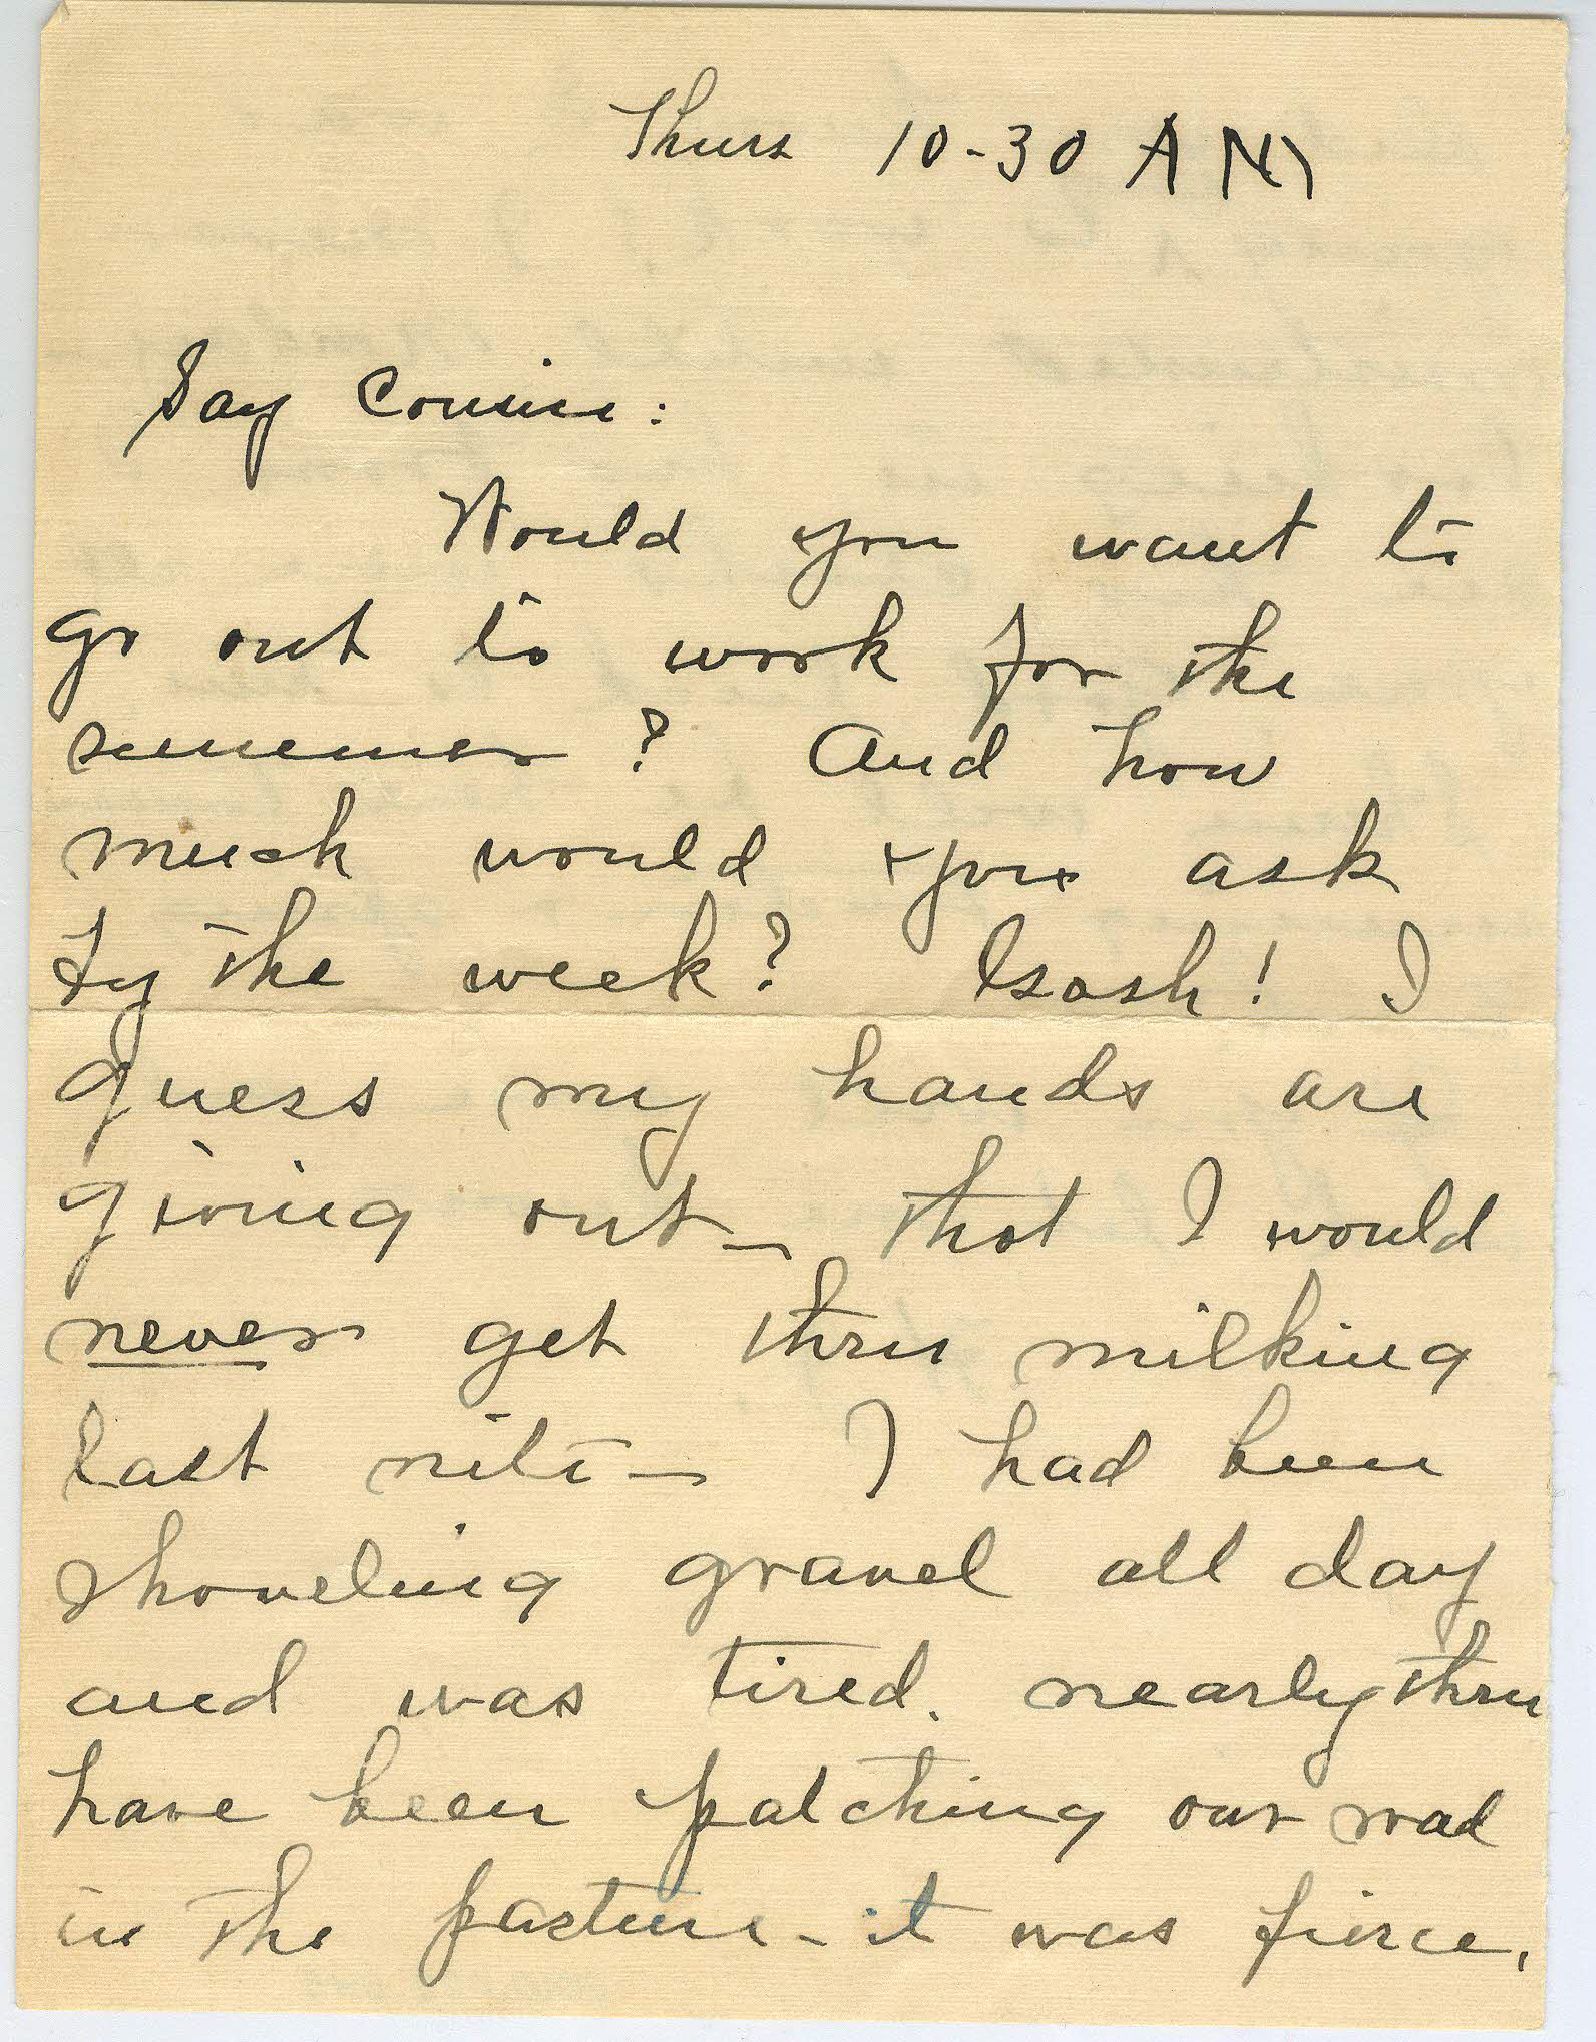 Thurs 10-30 AM
Say Cousin:
Would you want to
go out to work for the
summer? And how
much would you ask
by the week? Gosh! I
guess my hands are
giving out - thot I would
never get thru milking
last nite - I had been
shoveling gravel all day
and was tired. nearly thru
have been patching our road
in the pasture - it was fierce,